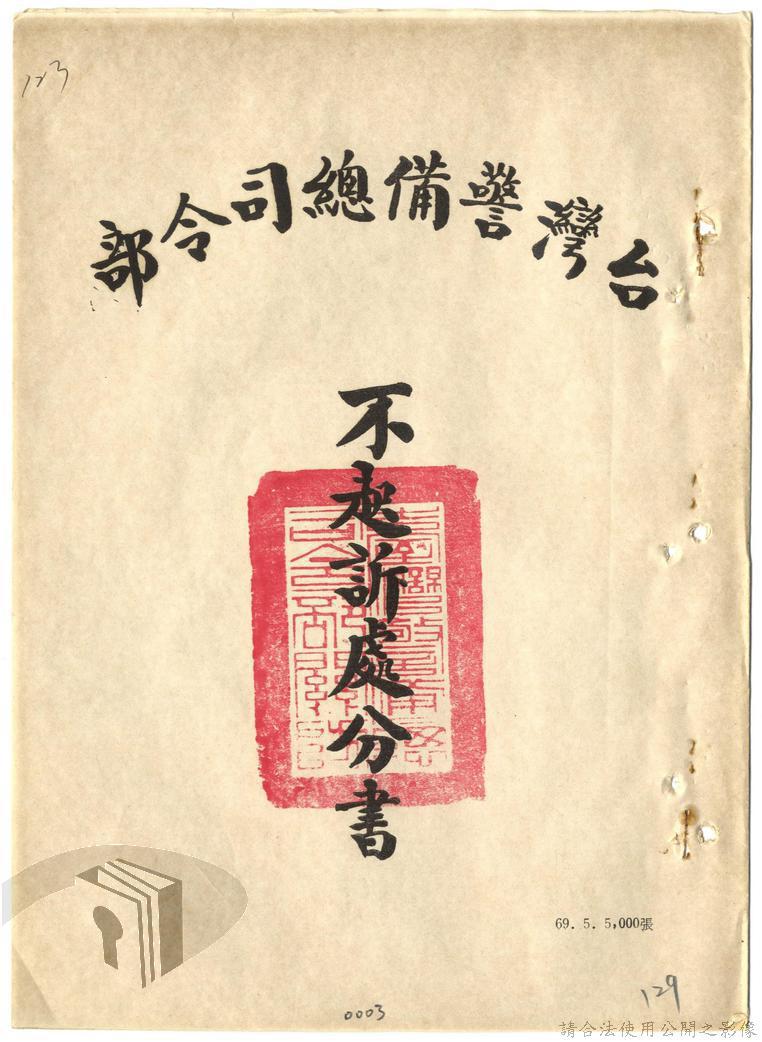 123
台灣警備總司令部
不起訴處分書
69. 5. 5,000張
129
0003
請合法使用公開之影像